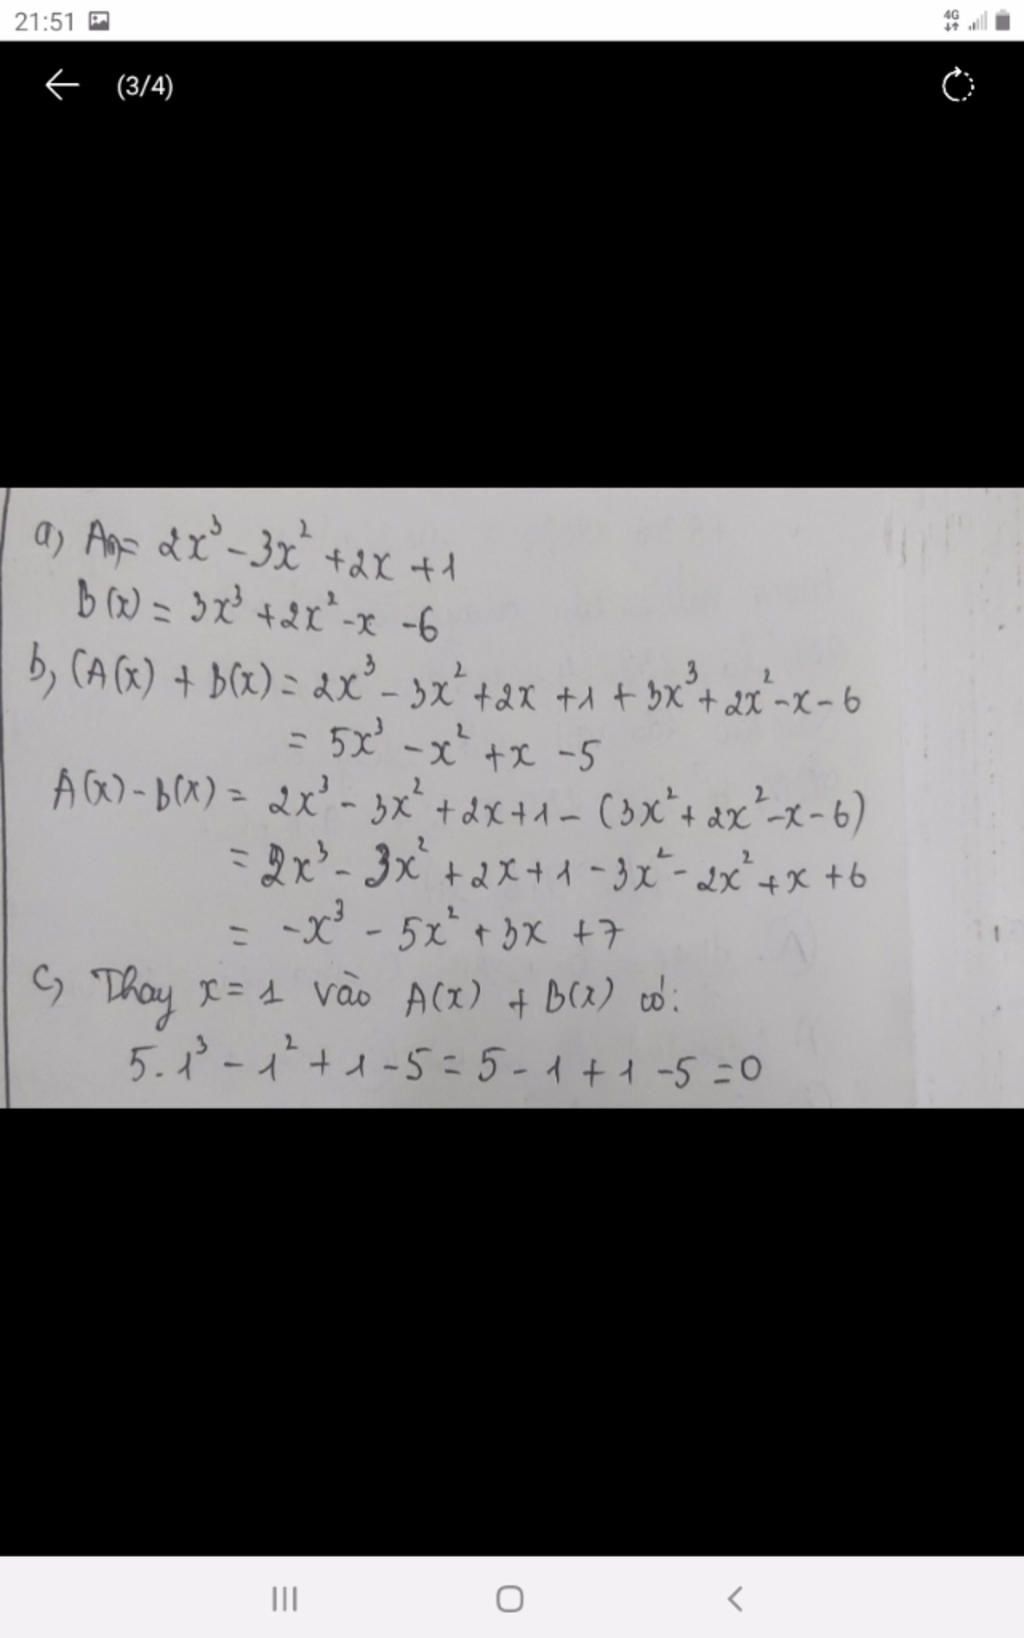 21:51
4G
(3/4)
a) A(x)= 2x³ - 3x² + 2x + 1
B(x) = 3x³ + 2x² - x - 6
b, (A(x) + B(x) = 2x³ - 3x² + 2x + 1 + 3x³ + 2x² - x - 6
= 5x³ - x² + x - 5
A(x) - B(x) = 2x³ - 3x² + 2x + 1 - (3x² + 2x² - x - 6)
= 2x³ - 3x² + 2x + 1 - 3x² - 2x² + x + 6
= -x³ - 5x² + 3x + 7
c) Thay x = 1 vào A(x) + B(x) có:
5.1³ - 1² + 1 - 5 = 5 - 1 + 1 - 5 = 0